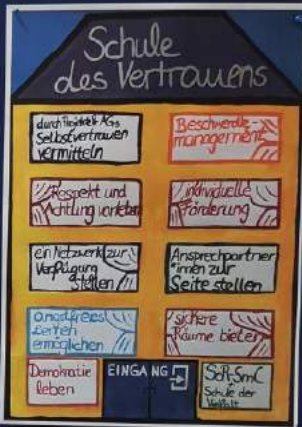 Schule
des Vertrauens
durch Projekte & AGs
Selbstvertrauen
vermitteln
Beschwerde-
management
Respekt und
Achtung vorleben
individuelle
Förderung
ein Netzwerk zur
Verfügung
stellen
Ansprechpartner
*innen zur
Seite stellen
angstfreies
Lernen
ermöglichen
sichere
Räume bieten
Demokratie
leben
EINGANG
SoR-SmC
Schule der
Vielfalt